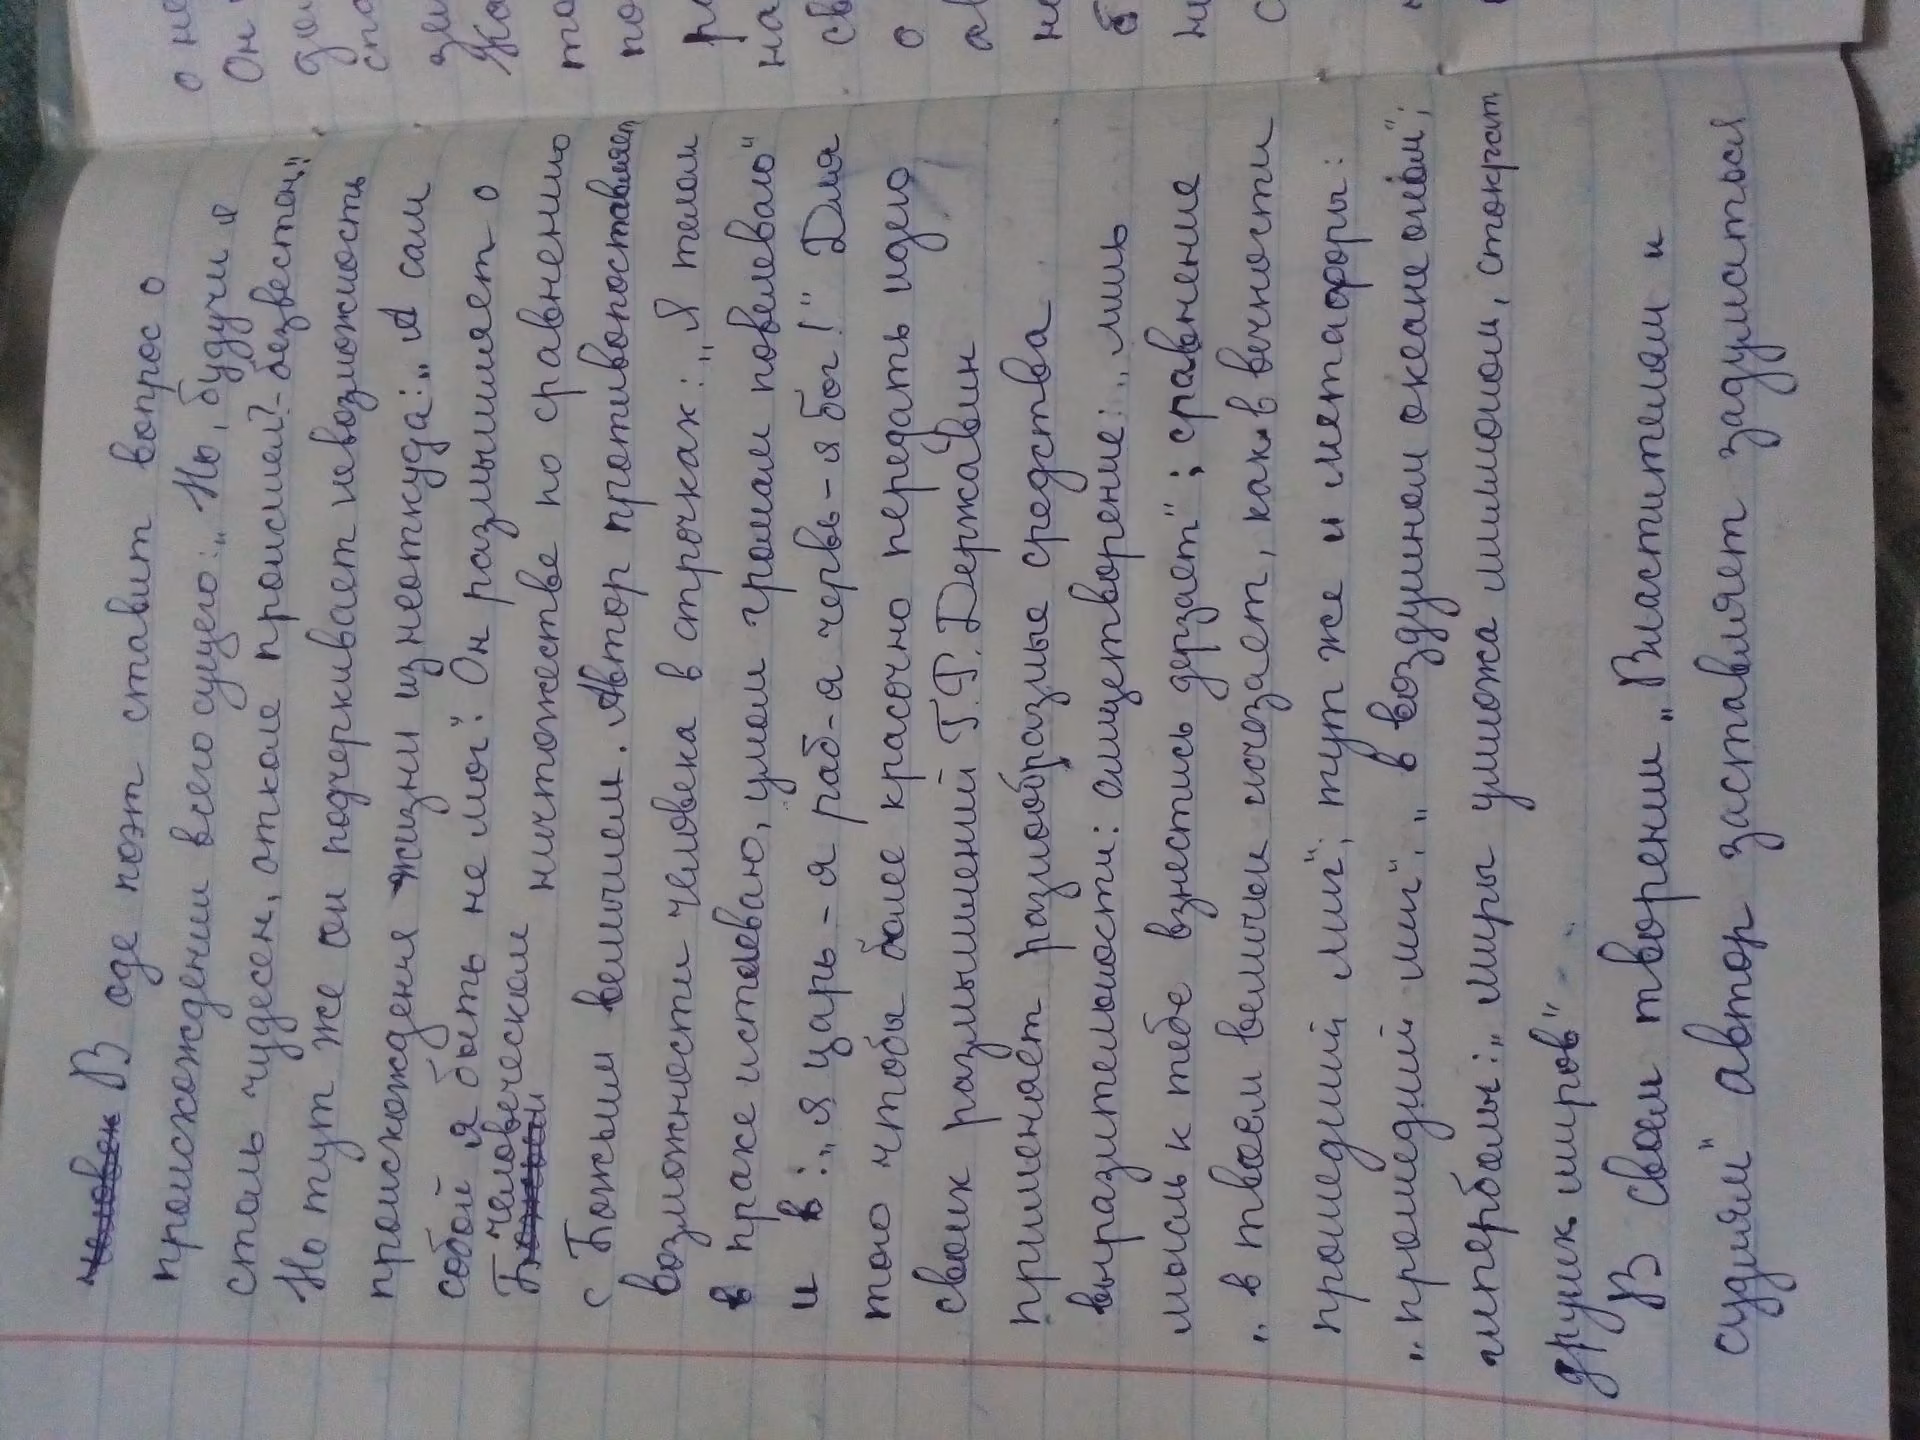 человек В оде поэт ставит вопрос о
происхождении всего сущего: „Но, будучи я
столь чудесен, отколе происшел?- безвестен;"
Но тут же он подчеркивает невозможность
происхождения жизни из неоткуда: „А сам
собой я быть не мог". Он размышляет о
человеческом ничтожестве по сравнению
Божьим
с Божьим величием. Автор противопоставляет
возможности человека в строчках: „Я телом
в прахе истлеваю, умом громам повелеваю"
и в: „я царь - я раб - я червь - я бог!" Для
того чтобы более красочно передать идею
своих размышлений Г.Р. Державин
применяет разнообразные средства
выразительности: олицетворение: „лишь
мысль к тебе взнестись дерзает"; сравнение
„в твоем величьи исчезает, как в вечности
прошедший миг"; тут же и метафоры:
„прошедший миг", „в воздушном океане оном";
гиперболы: „миры умножа миллионом, стократ
других миров"
В своем творении „Властителям и
судиям" автор заставляет задуматься
о не
Он
до
сп
зе
Ка
то
по
ра
на
св
о
ав
не
б
ни
с